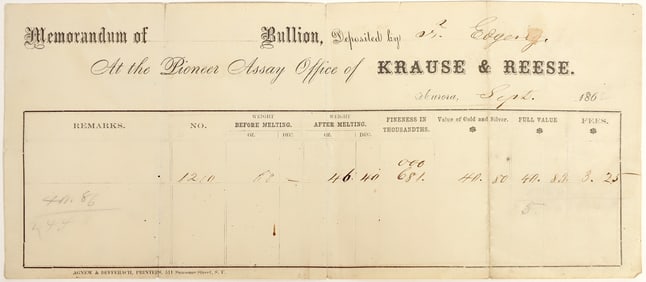 Memorandum of Bullion, Deposited by
At the Pioneer Assay Office of KRAUSE & REESE.
Aurora, Sept. 186
REMARKS. NO. WEIGHT BEFORE MELTING. OZ. DEC WEIGHT AFTER MELTING. OZ. DEC. FINENESS IN THOUSANDTHS. Value of Gold and Silver. $ FULL VALUE $ FEES. $
000
1200 60 — 46. 40 681. 40. 80 40. 3. 25
40.86
5
AGNEW & DEFFEBACH, PRINTERS, 511 Sansome Street, S. F.